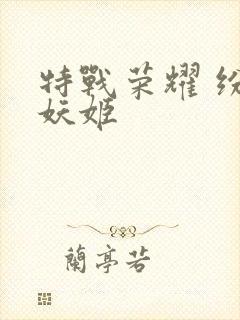 特戰荣耀 纷
妖姬
蘭亭若